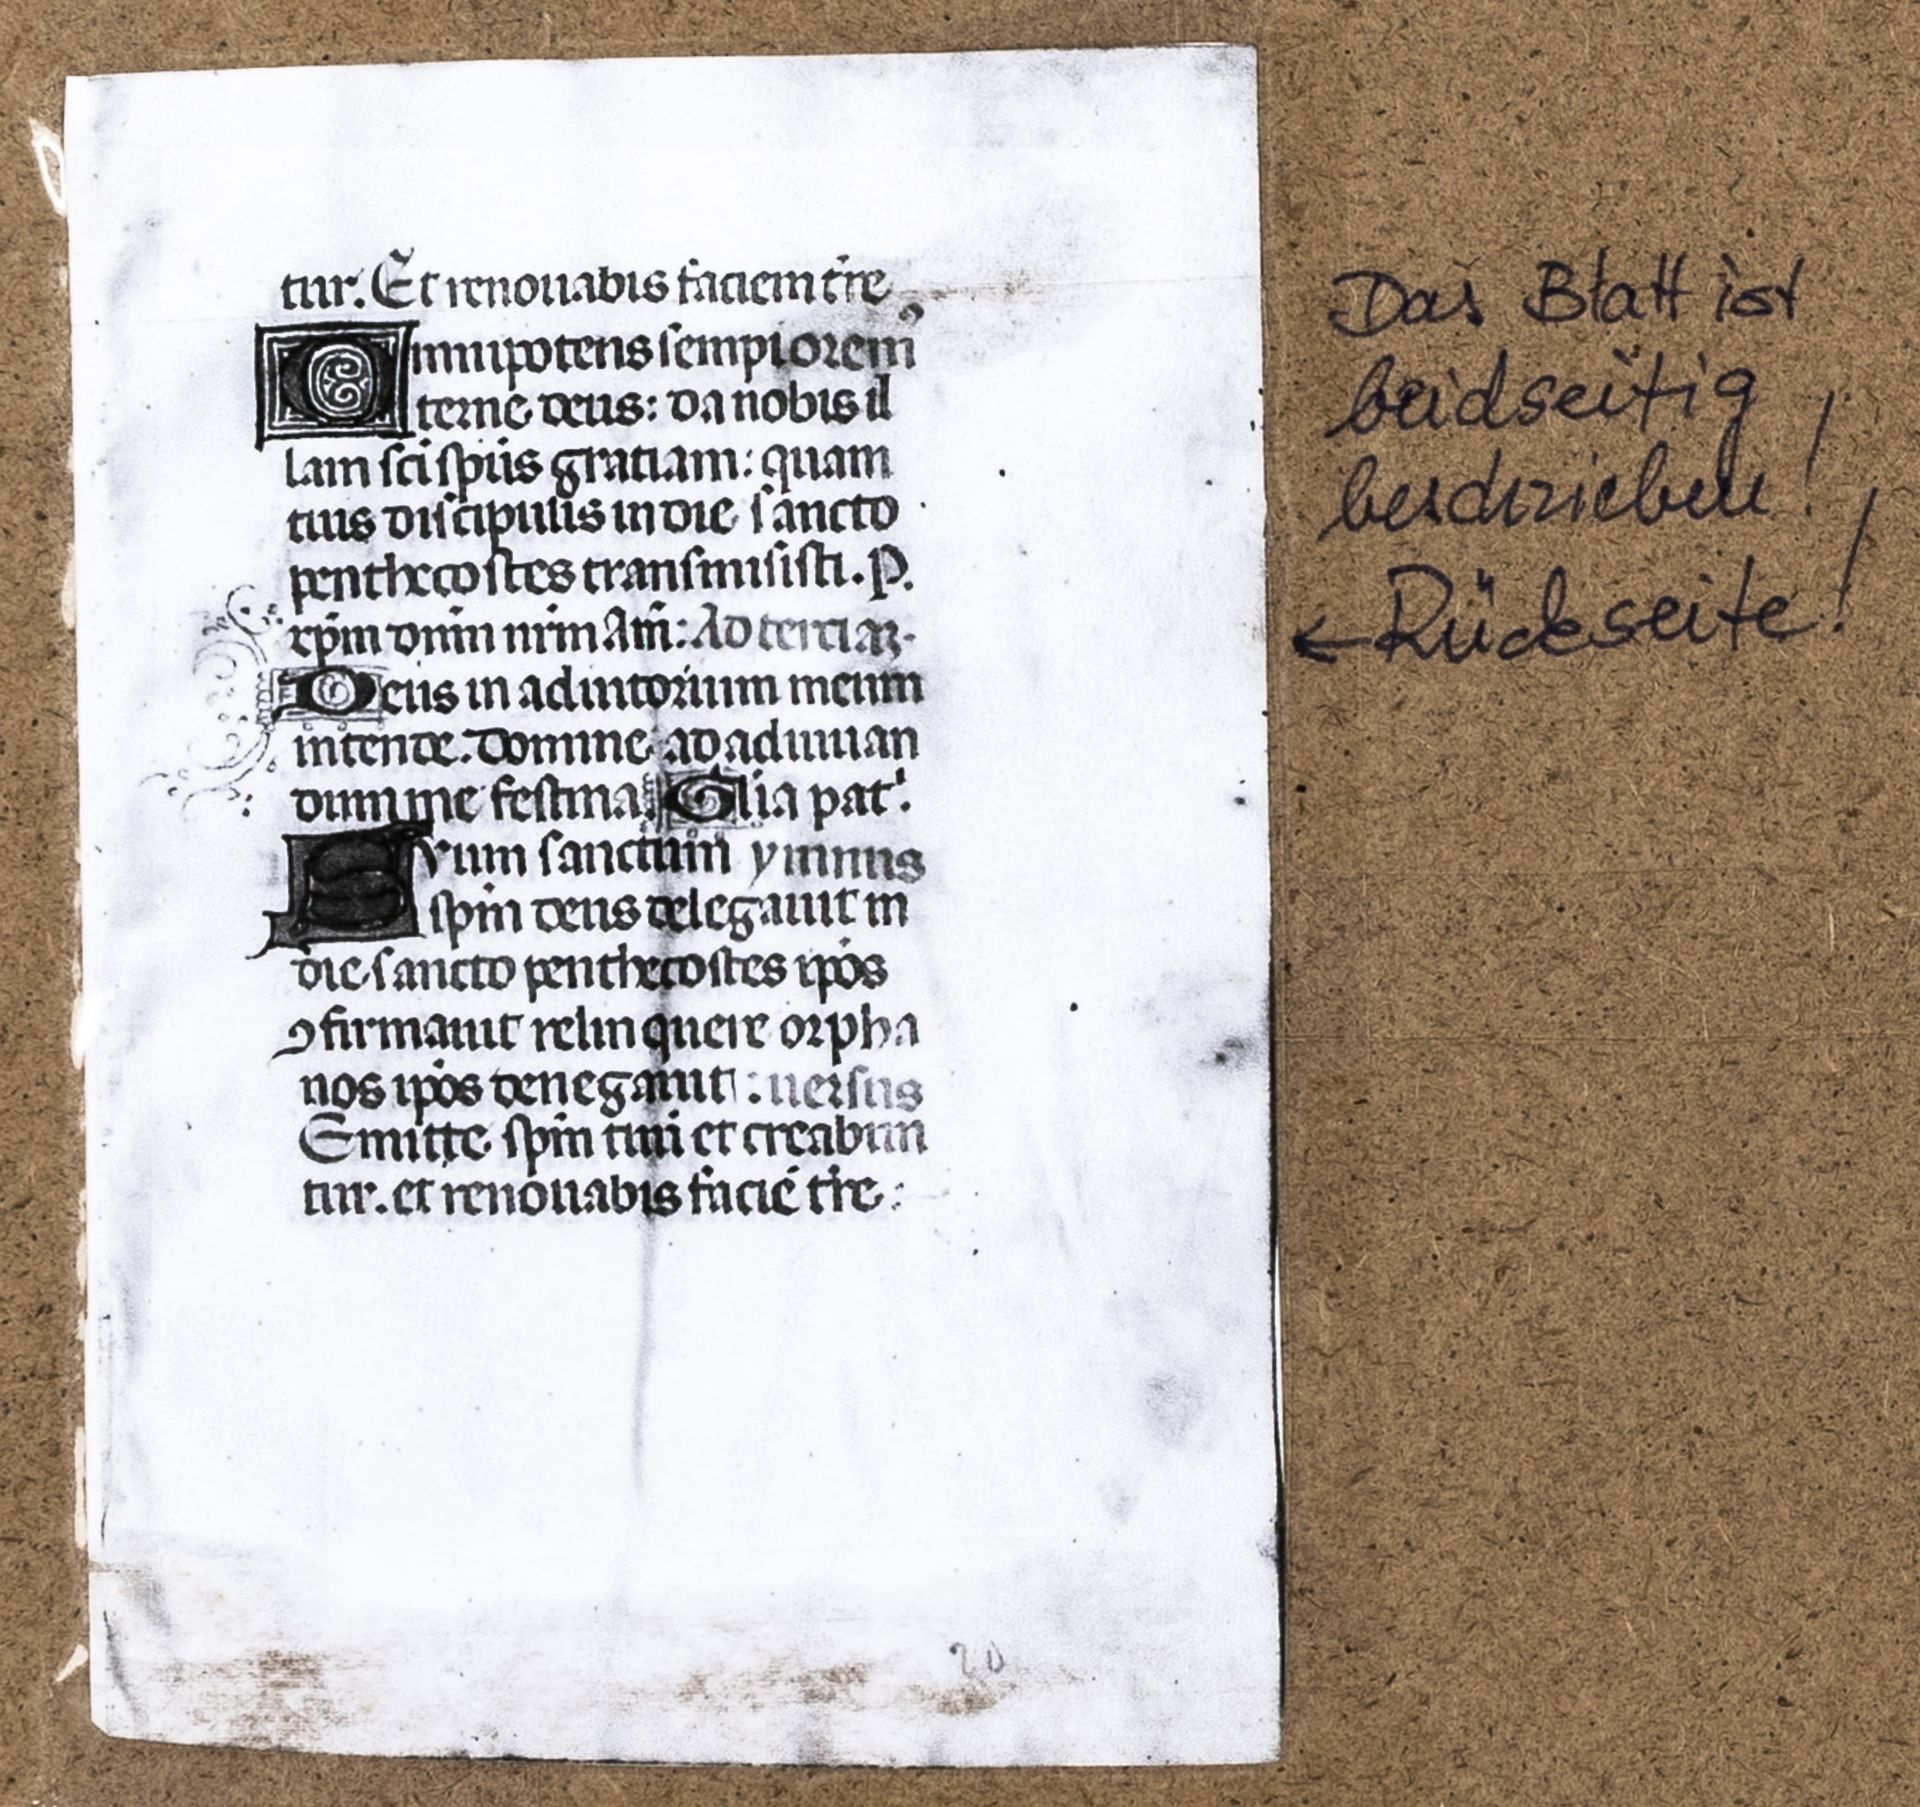 tur. Et renouabis faciem tre
Omnipotens sempi orem9
terne deus: da nobis il
lam sci spus gratiam: quam
tuis discipulis in die sancto
penthecostes transmisisti. P.
xpm dnm nrm Am: Ad terciaz.
Deus in adiutorium meum
intende. Domine ad adiuuan
dum me festina. Glia pat'.
Suum sanctum ymnus
spm deus delegauit in
die sancto penthecostes ipos
ꝯfirmauit relinquere orpha
nos ipos denegauit: uersus
Emitte spm tuu et creabun
tur. et renouabis facie tre:
20
Das Blatt ist
beidseitig
beschrieben!
← Rückseite!